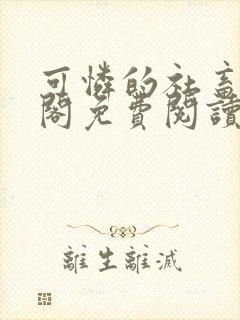 可憐的社畜
閣免費閱讀
離生離滅